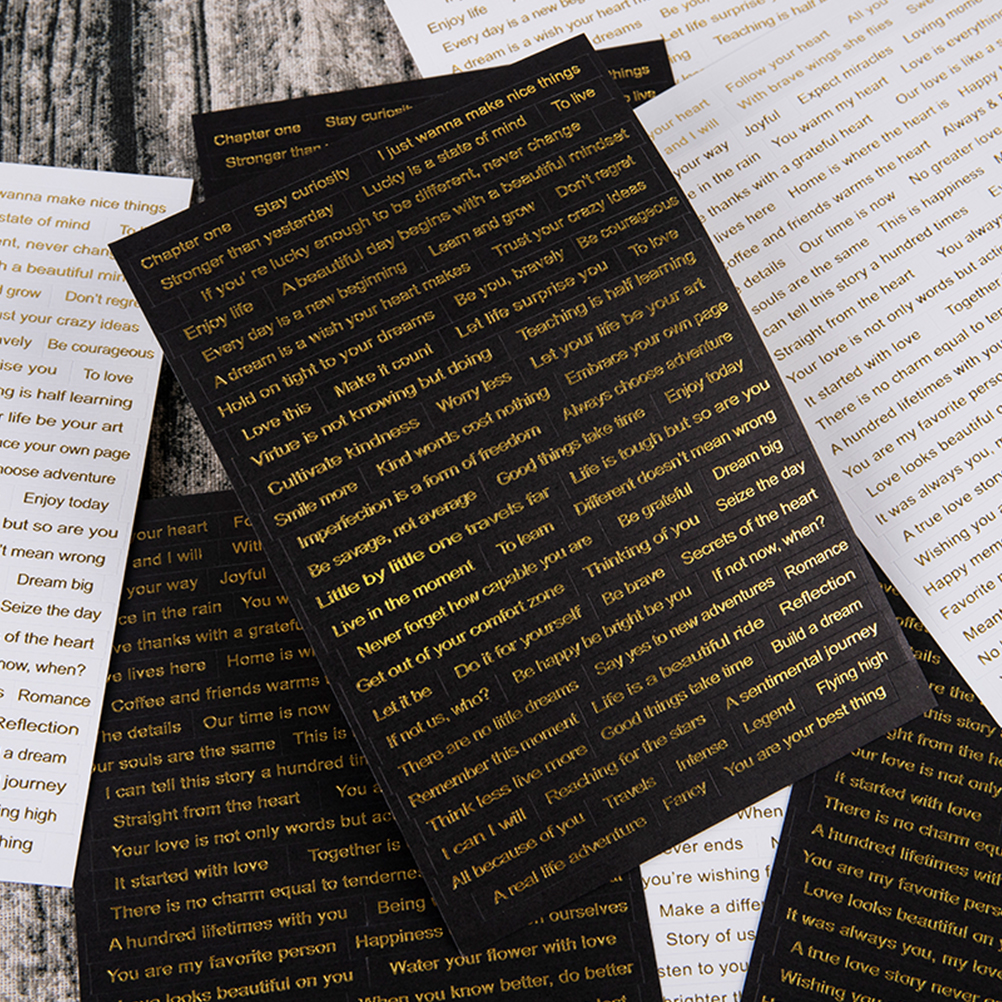 Chapter one Stay curiosity I just wanna make nice things
Stronger than yesterday Lucky is a state of mind To live
If you' re lucky enough to be different, never change
Enjoy life A beautiful day begins with a beautiful mindset
Every day is a new beginning Learn and grow Don't regret
A dream is a wish your heart makes Trust your crazy ideas
Hold on tight to your dreams Be you, bravely Be courageous
Love this Make it count Let life surprise you To love
Virtue is not knowing but doing Teaching is half learning
Cultivate kindness Worry less Let your life be your art
Smile more Kind words cost nothing Embrace your own page
Imperfection is a form of freedom Always choose adventure
Be savage, not average Good things take time Enjoy today
Little by little one travels far Life is tough but so are you
Live in the moment To learn Different doesn't mean wrong
Never forget how capable you are Be grateful Dream big
Get out of your comfort zone Thinking of you Seize the day
Let it be Do it for yourself Be brave Secrets of the heart
If not us, who? Be happy be bright be you If not now, when?
There are no little dreams Say yes to new adventures Romance
Remember this moment Life is a beautiful ride Reflection
Think less live more Good things take time Build a dream
I can I will Reaching for the stars A sentimental journey
All because of you Travels Intense Legend Flying high
A real life adventure Fancy You are your best thing
Chapter one Stay curiosity things
Stronger than to live
wanna make nice things
state of mind To
ent, never change
h a beautiful mind
d grow Don't regret
ust your crazy ideas
vely Be courageous
rise you To love
ng is half learning
r life be your art
ace your own page
hoose adventure
Enjoy today
but so are you
't mean wrong
Dream big
Seize the day
of the heart
now, when?
Romance
Reflection
a dream
journey
ing high
thing
Enjoy life
Every day is a new beginning
A dream is a wish your heart makes
Let life surprise you
Teaching is half learning
your heart Follow your heart All you
and I will With brave wings she flies
your way Joyful Expect miracles Loving moments
e in the rain You warm my heart Love is everything
e thanks with a grateful heart Our love is like a
lives here Home is where the heart is Happy
offee and friends warms the heart Always &
details Our time is now No greater love
souls are the same This is happiness
can tell this story a hundred times You always
Straight from the heart
Your love is not only words but acti
It started with love Together
There is no charm equal to tend
A hundred lifetimes with you
You are my favorite person
Love looks beautiful on
It was always you, m
A true love story
Wishing you
Happy moment
Favorite
Mean
No
our heart
and I will With
your way Joyful
ce in the rain You w
ve thanks with a grateful
e lives here Home is w
Coffee and friends warms
he details Our time is now
ur souls are the same This is
I can tell this story a hundred tim
Straight from the heart You a
Your love is not only words but act
It started with love Together is
There is no charm equal to tenderne
A hundred lifetimes with you Being
You are my favorite person Happiness ourselves
ove looks beautiful on you Water your flower with love
When you know better, do better
When
ver ends
you're wishing f
Make a differ
Story of us
sten to you
brighter th
this story
ght from the he
our love is not only
It started with love
There is no charm equ
A hundred lifetimes with
You are my favorite pers
Love looks beautiful on
It was always you, my lov
A true love story never
Wishing you